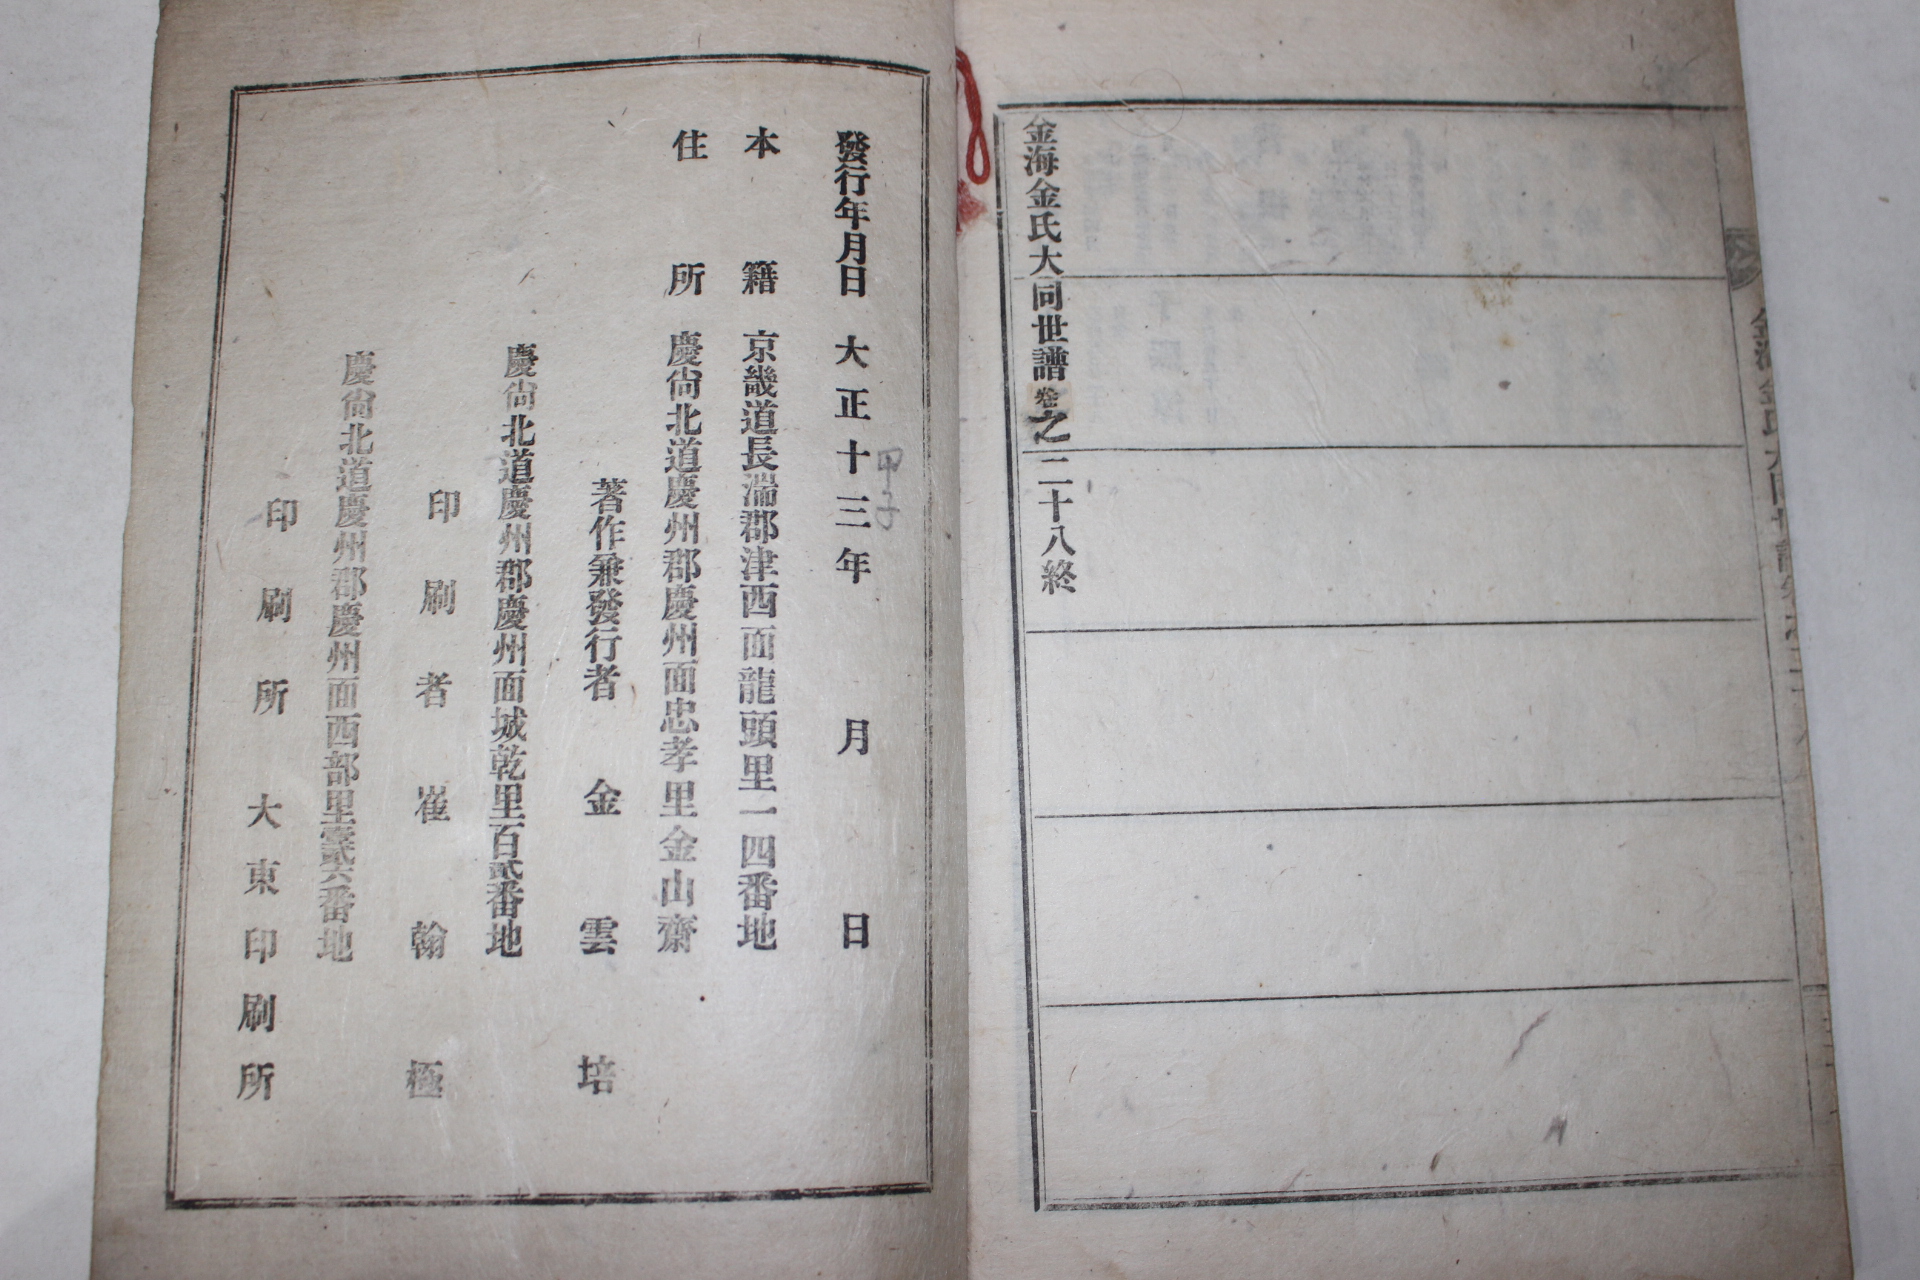 金海金氏大同世譜卷之二十八終
發行年月日 大正十三年 月 日
甲子
本籍 京畿道長湍郡津西面龍頭里一四番地
住所 慶尙北道慶州郡慶州面忠孝里金山齋
著作兼發行者 金雲培
慶尙北道慶州郡慶州面城乾里百貳番地
印刷者 崔翰極
慶尙北道慶州郡慶州面西部里壹貳六番地
印刷所 大東印刷所